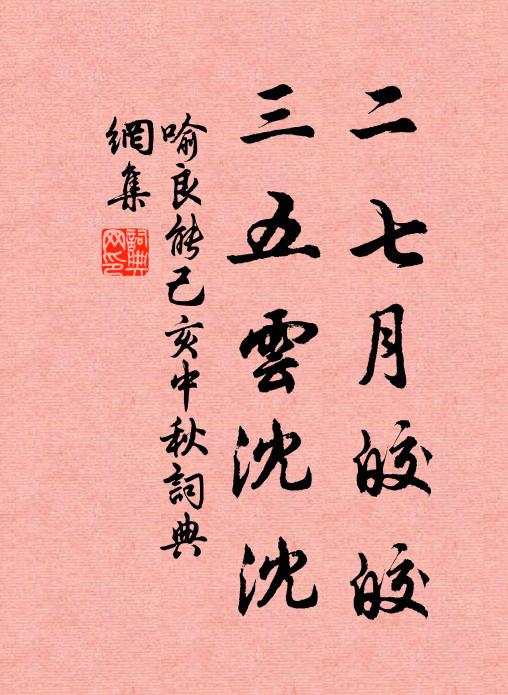 二七月皎皎
三五雲沈沈
喻良能己亥中秋詞典
網集
詞典
网印